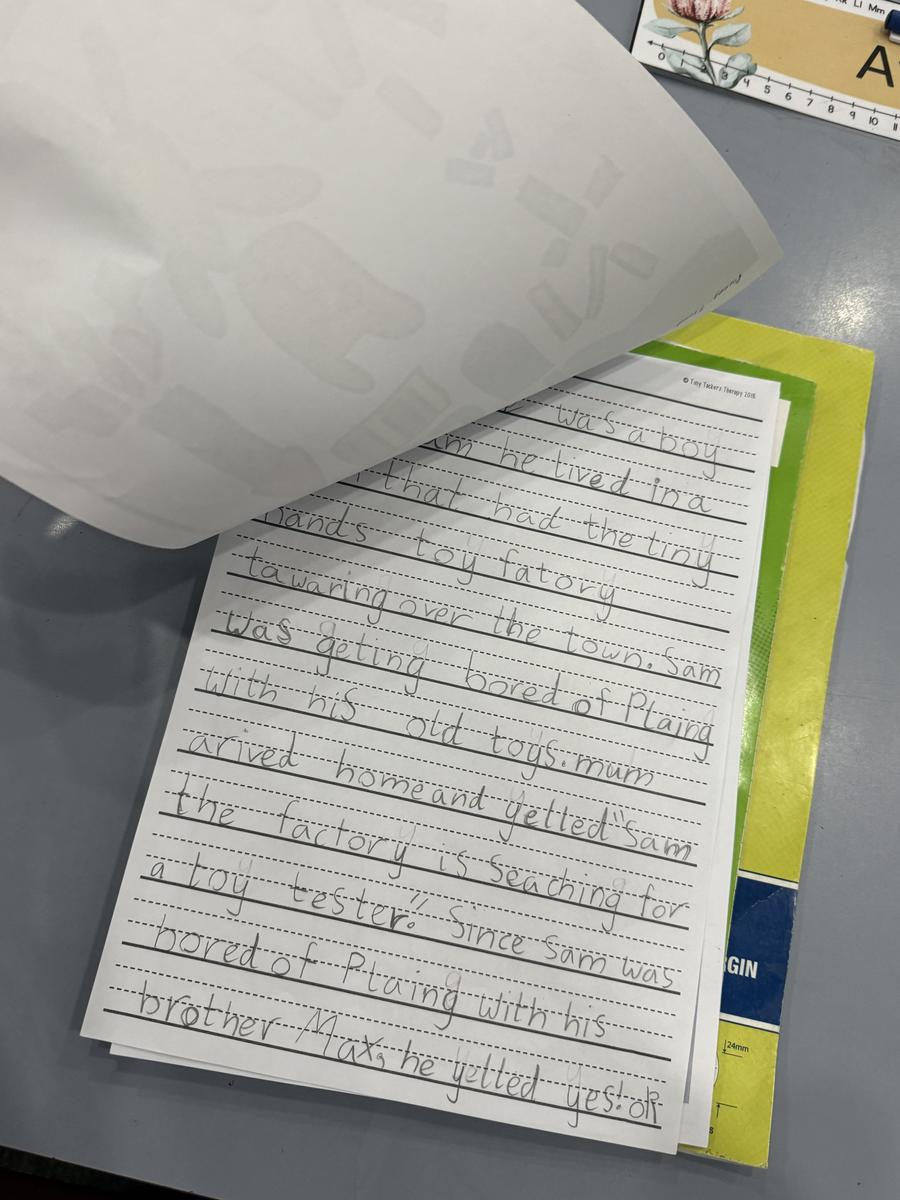 Ll Mm
A
0 3 4 5 6 7 8 9 10 11
© Tiny Tackers Therapy 2018
was a boy
he lived in a
that had the tiny
hands toy fatory
tawaring over the town. Sam
was geting bored of Plaing
with his old toys. mum
arived home and yelled "Sam
the factory is seaching for
a toy tester." Since Sam was
bored of Plaing with his
brother Max, he yelled yes! ok
GIN
24mm